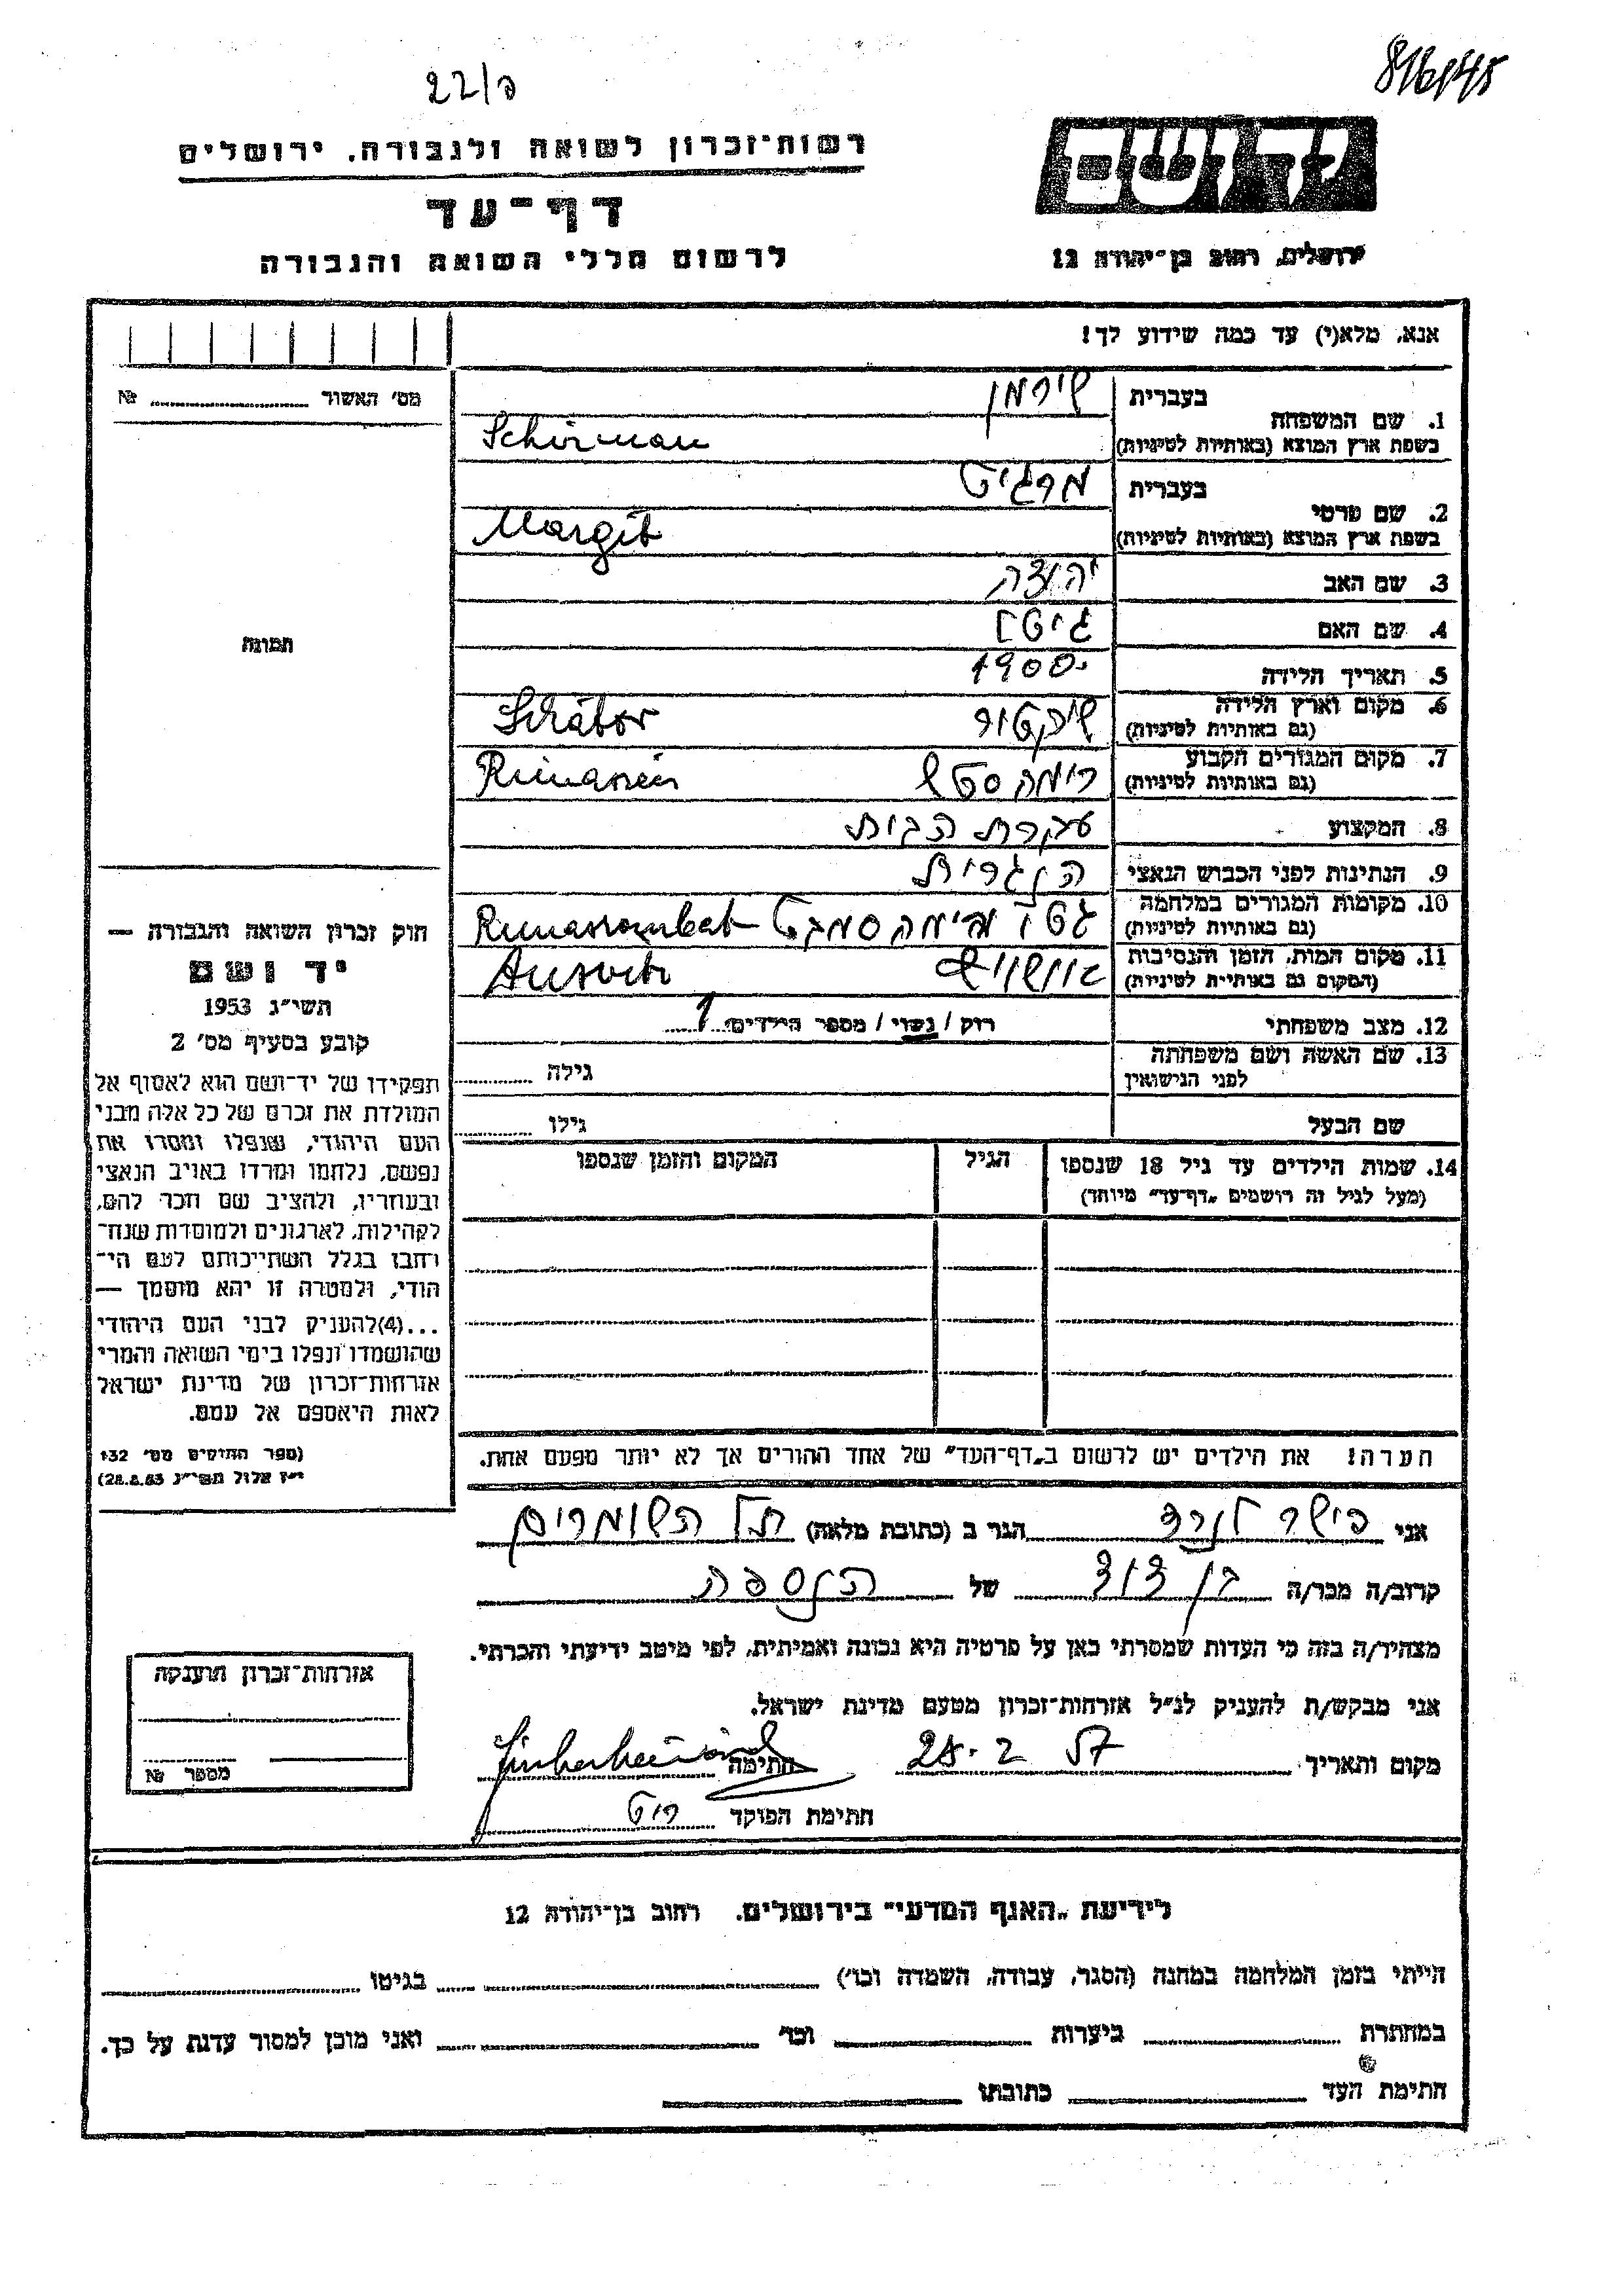 22/ב
816/45
רשות-זכרון לשואה ולגבורה, ירושלים
דף-עד
לרשום חללי השואה והגבורה
יד ושם
ירושלים, רחוב בן-יהודה 12
אנא, מלא(י) עד כמה שידוע לך!
מס' האשור № 
1. שם המשפחה
בעברית שירמן
בשפת ארץ המוצא (באותיות לטיניות) Schirman
2. שם פרטי
בעברית מרגיט
בשפת ארץ המוצא (באותיות לטיניות) Margit
3. שם האב יהודה
4. שם האם
5. תאריך הלידה 1900
6. מקום וארץ הלידה
(גם באותיות לטיניות)
7. מקום המגורים הקבוע
(גם באותיות לטיניות)
8. המקצוע עקרת הבית
9. הנתינות לפני הכבוש הנאצי הונגרית
10. מקומות המגורים במלחמה גטו
(גם באותיות לטיניות)
11. מקום המות, הזמן והנסיבות אושויץ
(המקום גם באותיות לטיניות)
12. מצב משפחתי רוק / נשוי / מספר הילדים 1
13. שם האשה ושם משפחתה
לפני הנישואין
גילה
שם הבעל גילו
14. שמות הילדים עד גיל 18 שנספו
(מעל לגיל זה רושמים "דף-עד" מיוחד)
הגיל
המקום והזמן שנספו
הערה! את הילדים יש לרשום ב"דף-העד" של אחד ההורים אך לא יותר מפעם אחת.
תמונה
חוק זכרון השואה והגבורה —
יד ושם
תשי"ג 1953
קובע בסעיף מס' 2
תפקידו של יד-ושם הוא לאסוף אל
המולדת את זכרם של כל אלה מבני
העם היהודי, שנפלו ומסרו את
נפשם, נלחמו ומרדו באויב הנאצי
ובעוזריו, ולהציב שם וזכר להם,
לקהילות, לארגונים ולמוסדות שנח-
רבו בגלל השתייכותם לעם הי-
הודי, ולמטרה זו יהא מוסמך —
...(4)להעניק לבני העם היהודי
שהושמדו ונפלו בימי השואה והמרי
אזרחות-זכרון של מדינת ישראל
לאות היאספם אל עמם.
(ספר החוקים מס' 132
י"ז אלול תשי"ג 28.8.53)
אני פישר הגר ב (כתובת מלאה) תל השומרים
קרוב/ה מכר/ה בן דוד של הנספה
מצהיר/ה בזה כי העדות שמסרתי כאן על פרטיה היא נכונה ואמיתית, לפי מיטב ידיעתי והכרתי.
אני מבקש/ת להעניק לנ"ל אזרחות-זכרון מטעם מדינת ישראל.
מקום ותאריך 28.2 57 חתימה
חתימת הפוקד
אזרחות-זכרון הוענקה
מספר №
לידיעת "האגף המדעי" בירושלים. רחוב בן-יהודה 12
הייתי בזמן המלחמה במחנה (הסגר, עבודה, השמדה וכו') בגיטו
במחתרת ביערות וכו' ואני מוכן למסור עדות על כך.
חתימת העד כתובתו